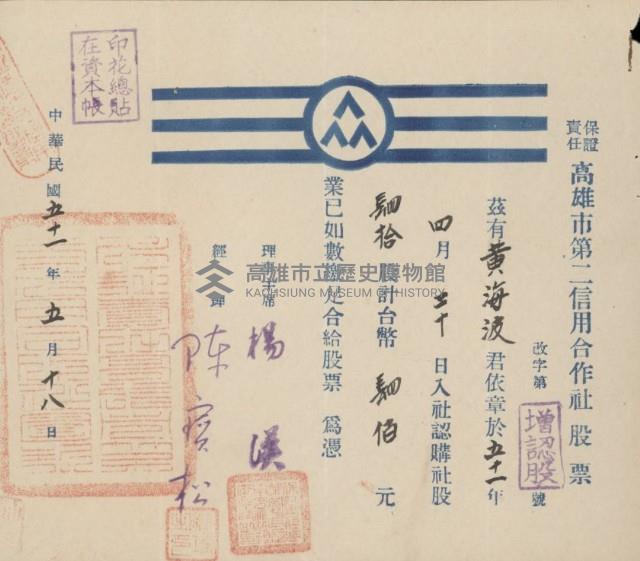 保證責任 高雄市第二信用合作社股票
改字第 增認股 號
茲有黃海波君依章於五十一年
四月三十日入社認購社股
肆拾股計台幣肆佰元
業已如數繳足合給股票為憑
理事主席 楊
經理 陳寶松
中華民國五十一年五月十八日
印花總貼
在資本帳
高雄市立歷史博物館
KAOHSIUNG MUSEUM OF HISTORY